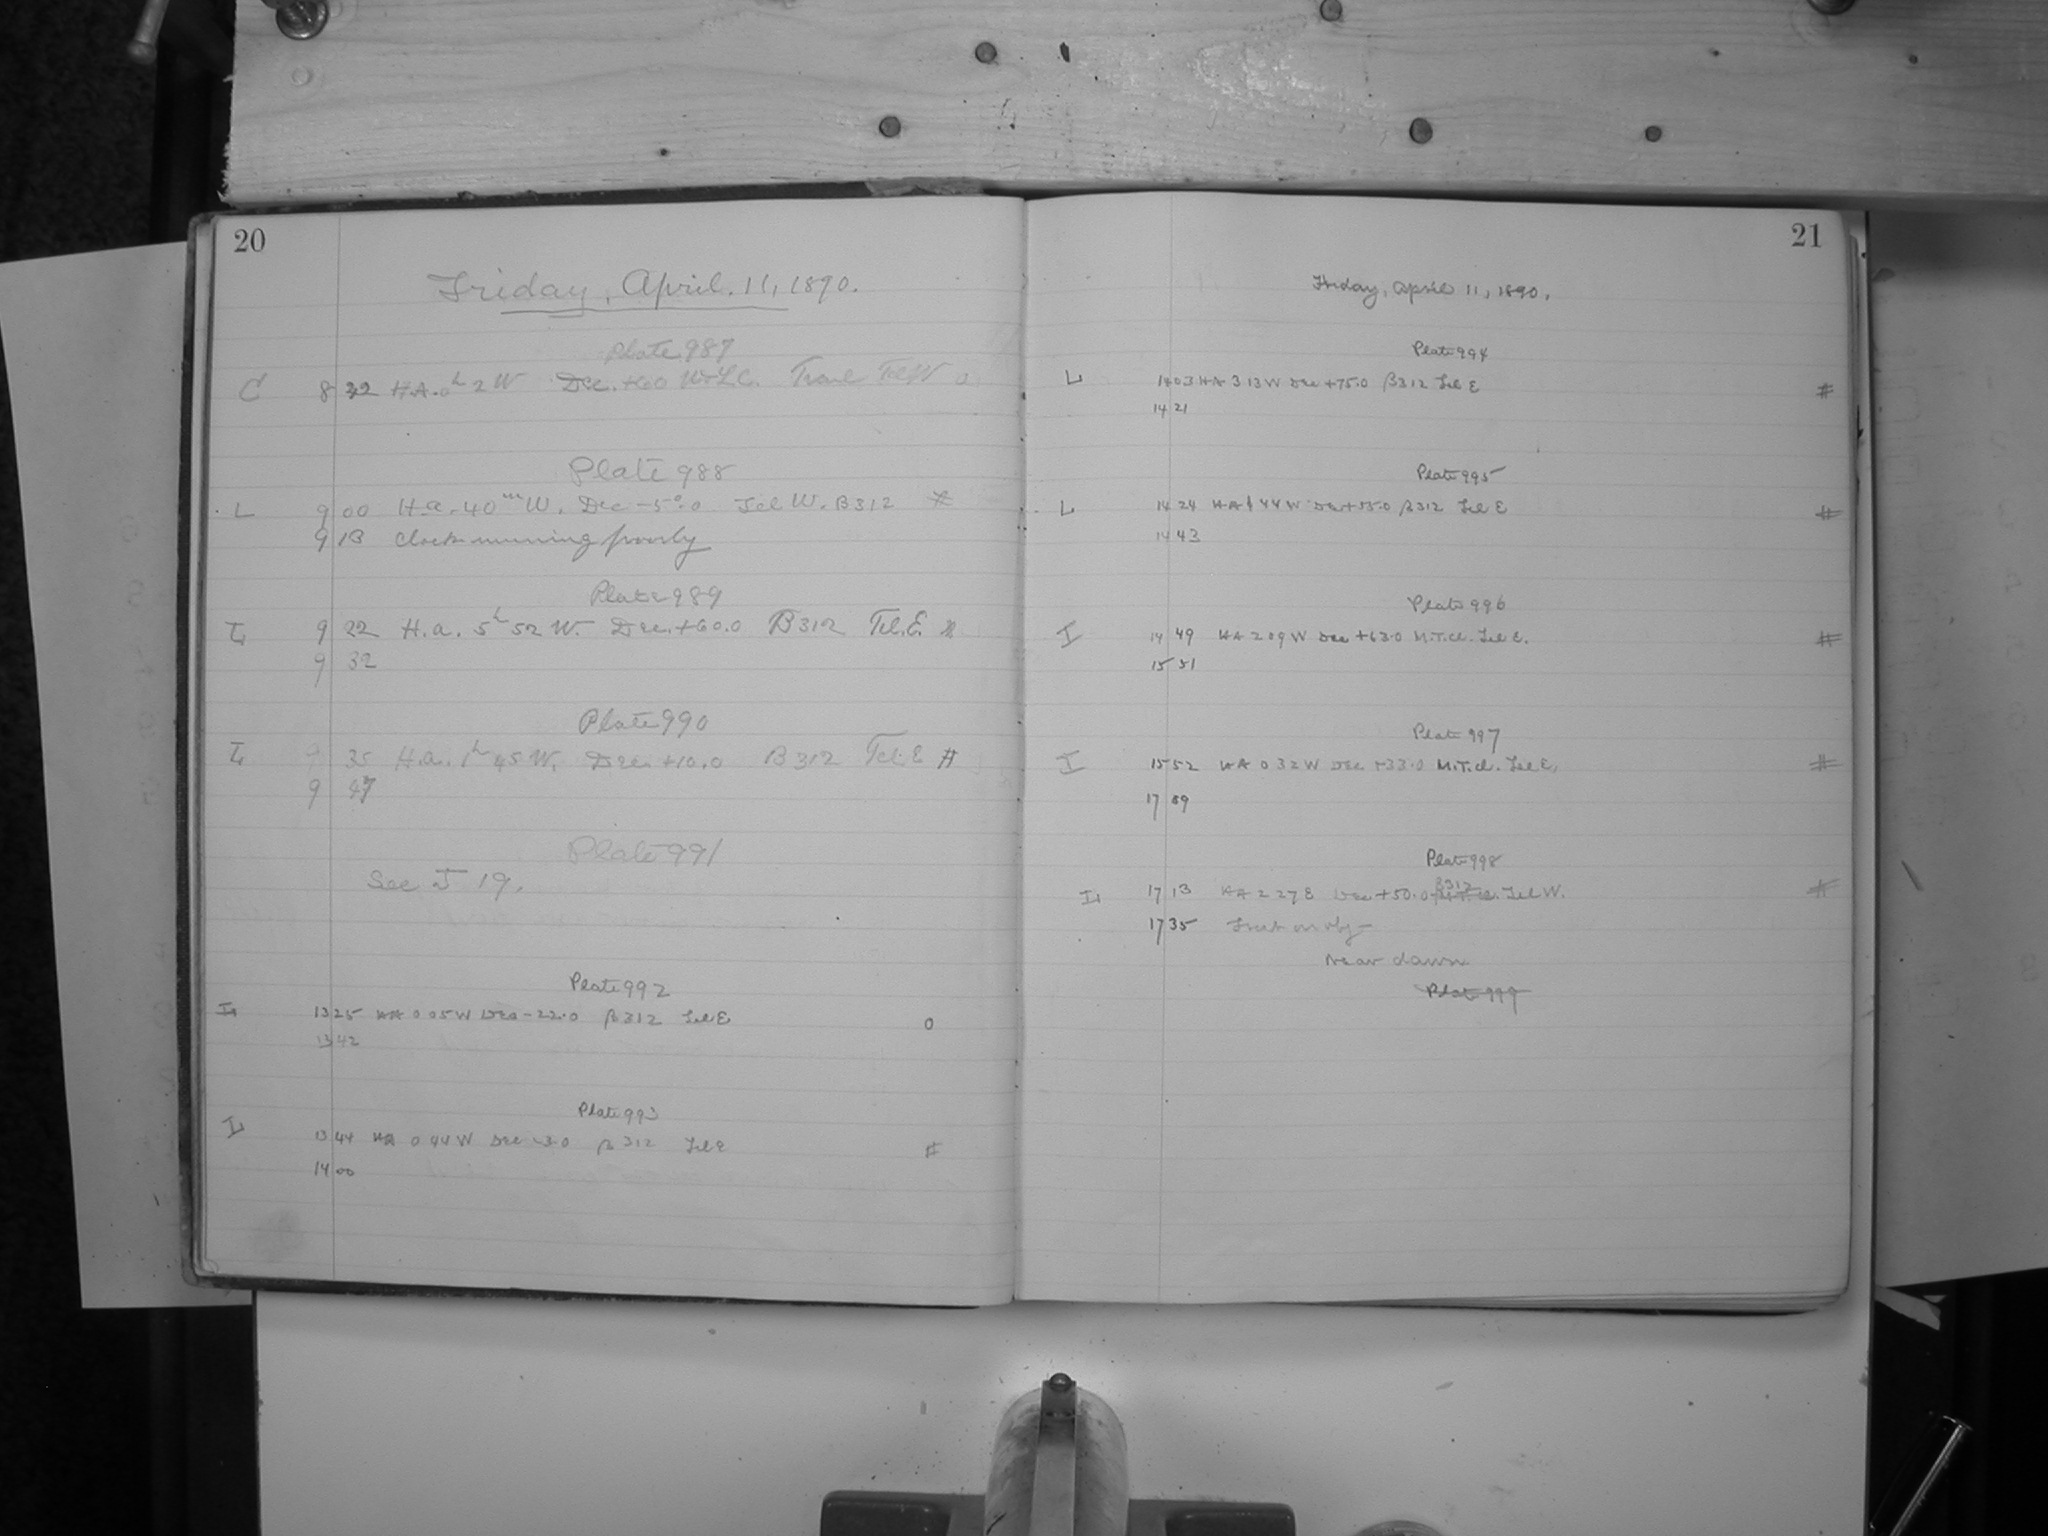 20
Friday, April. 11, 1890.
Plate 987
C 8 H.A. 0h 2 W Dec. +60 Tel W
Plate 988
L 9 00 H.a. 40m W. Dec -5°.0 Tel W. B312 #
9 13 Clock running poorly
Plate 989
I 9 22 H.a. 5h 52 W. Dec. +60.0 B312 Tel. E. #
9 32
Plate 990
I 9 35 H.a. 1h 45 W. Dec. +10.0 B312 Tel. E #
9
Plate 991
See J 19.
Plate 992
13 25 HA 0 05 W Dec -22.0 β312 Tel E 0
13 42
Plate 993
I 13 44 HA 0 44 W Dec β 312 Tel E #
14 00
21
Friday, April 11, 1890.
Plate 994
L 14 03 HA 3 13 W Dec +75.0 β312 Tel E #
14 21
Plate 995
L 14 24 HA 44 W Dec β312 Tel E #
14 43
Plate 996
I 14 49 HA 2 09 W Dec +63.0 M.T.cl. Tel E. #
15 51
Plate 997
I 15 52 HA 0 32 W Dec +33.0 M.T.cl. Tel E. #
17 09
Plate 998
17 13 HA 2 27 E Dec +50.0 B312 Tel W. #
17 35
Near dawn
Plate 999